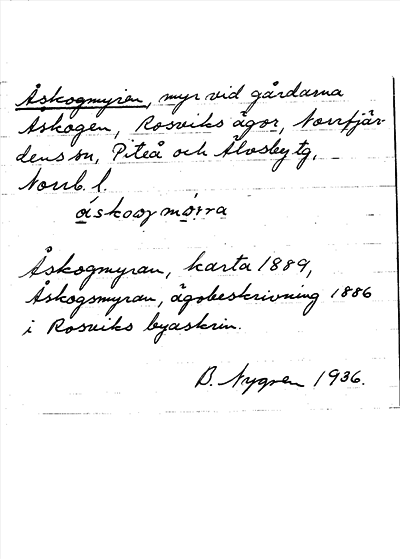 Åskogmyren, myr vid gårdarna
Åskogen, Rosviks ägor, Norrfjär-
dens sn, Piteå och Älvsby tg,
Norrb. l.
Åskogmyran, karta 1889,
Åskogsmyran, ägobeskrivning 1886
i Rosviks byaskrin.
B. Nygren 1936.